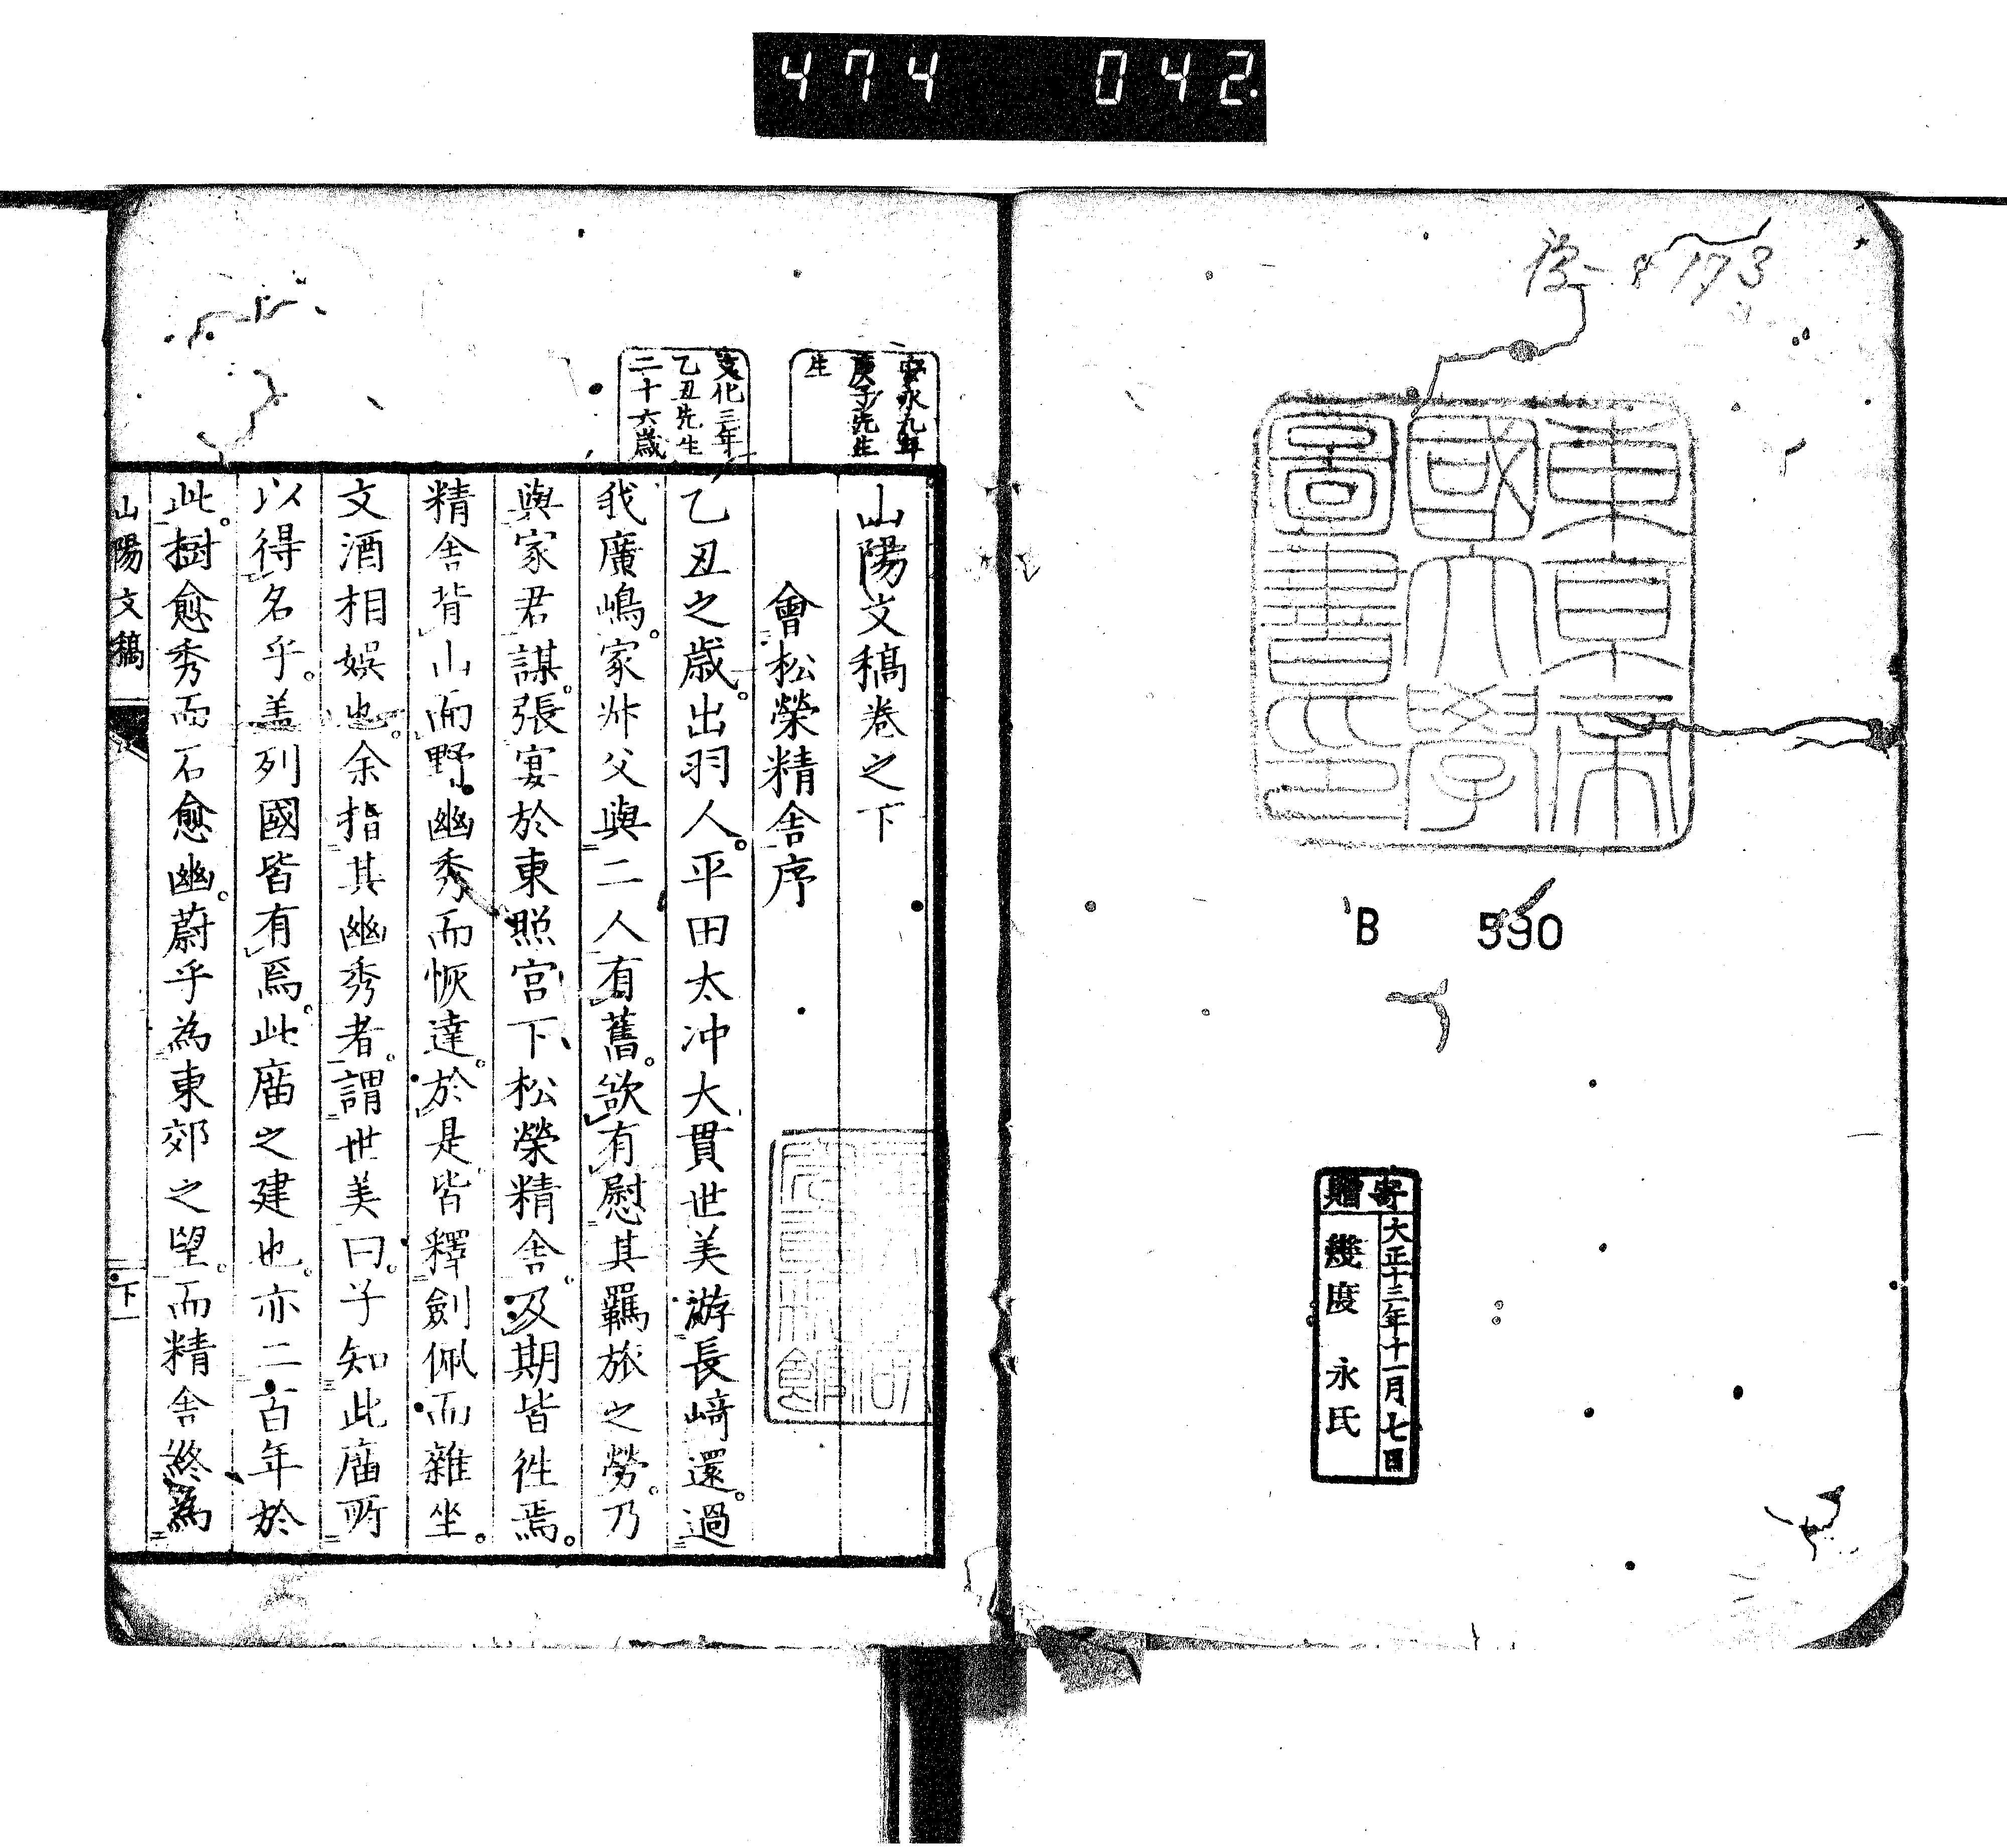 474 042
4173
東京帝
國大學
圖書之印
B 590
寄贈
大正十三年十一月七日
幾度永氏
安永九年
庚子先生
生
文化二年
乙丑先生
二十六歲
山陽文稿卷之下
會松榮精舍序
乙丑之歲。出羽人。平田太冲大貫世美游長﨑還。過
我廣嶋。家叔父與二人有舊。欲有慰其羈旅之勞。乃
與家君謀。張宴於東照宮下松榮精舍。及期皆徃焉。
精舍背山而野。幽秀而恢達。於是皆釋劍佩而雜坐。
文酒相娛也。余指其幽秀者。謂世美曰。子知此庿所
以得名乎。盖列國皆有焉。此庿之建也。亦二百年於
此。樹愈秀而石愈幽。蔚乎為東郊之望。而精舍終為
山陽文稿
下一